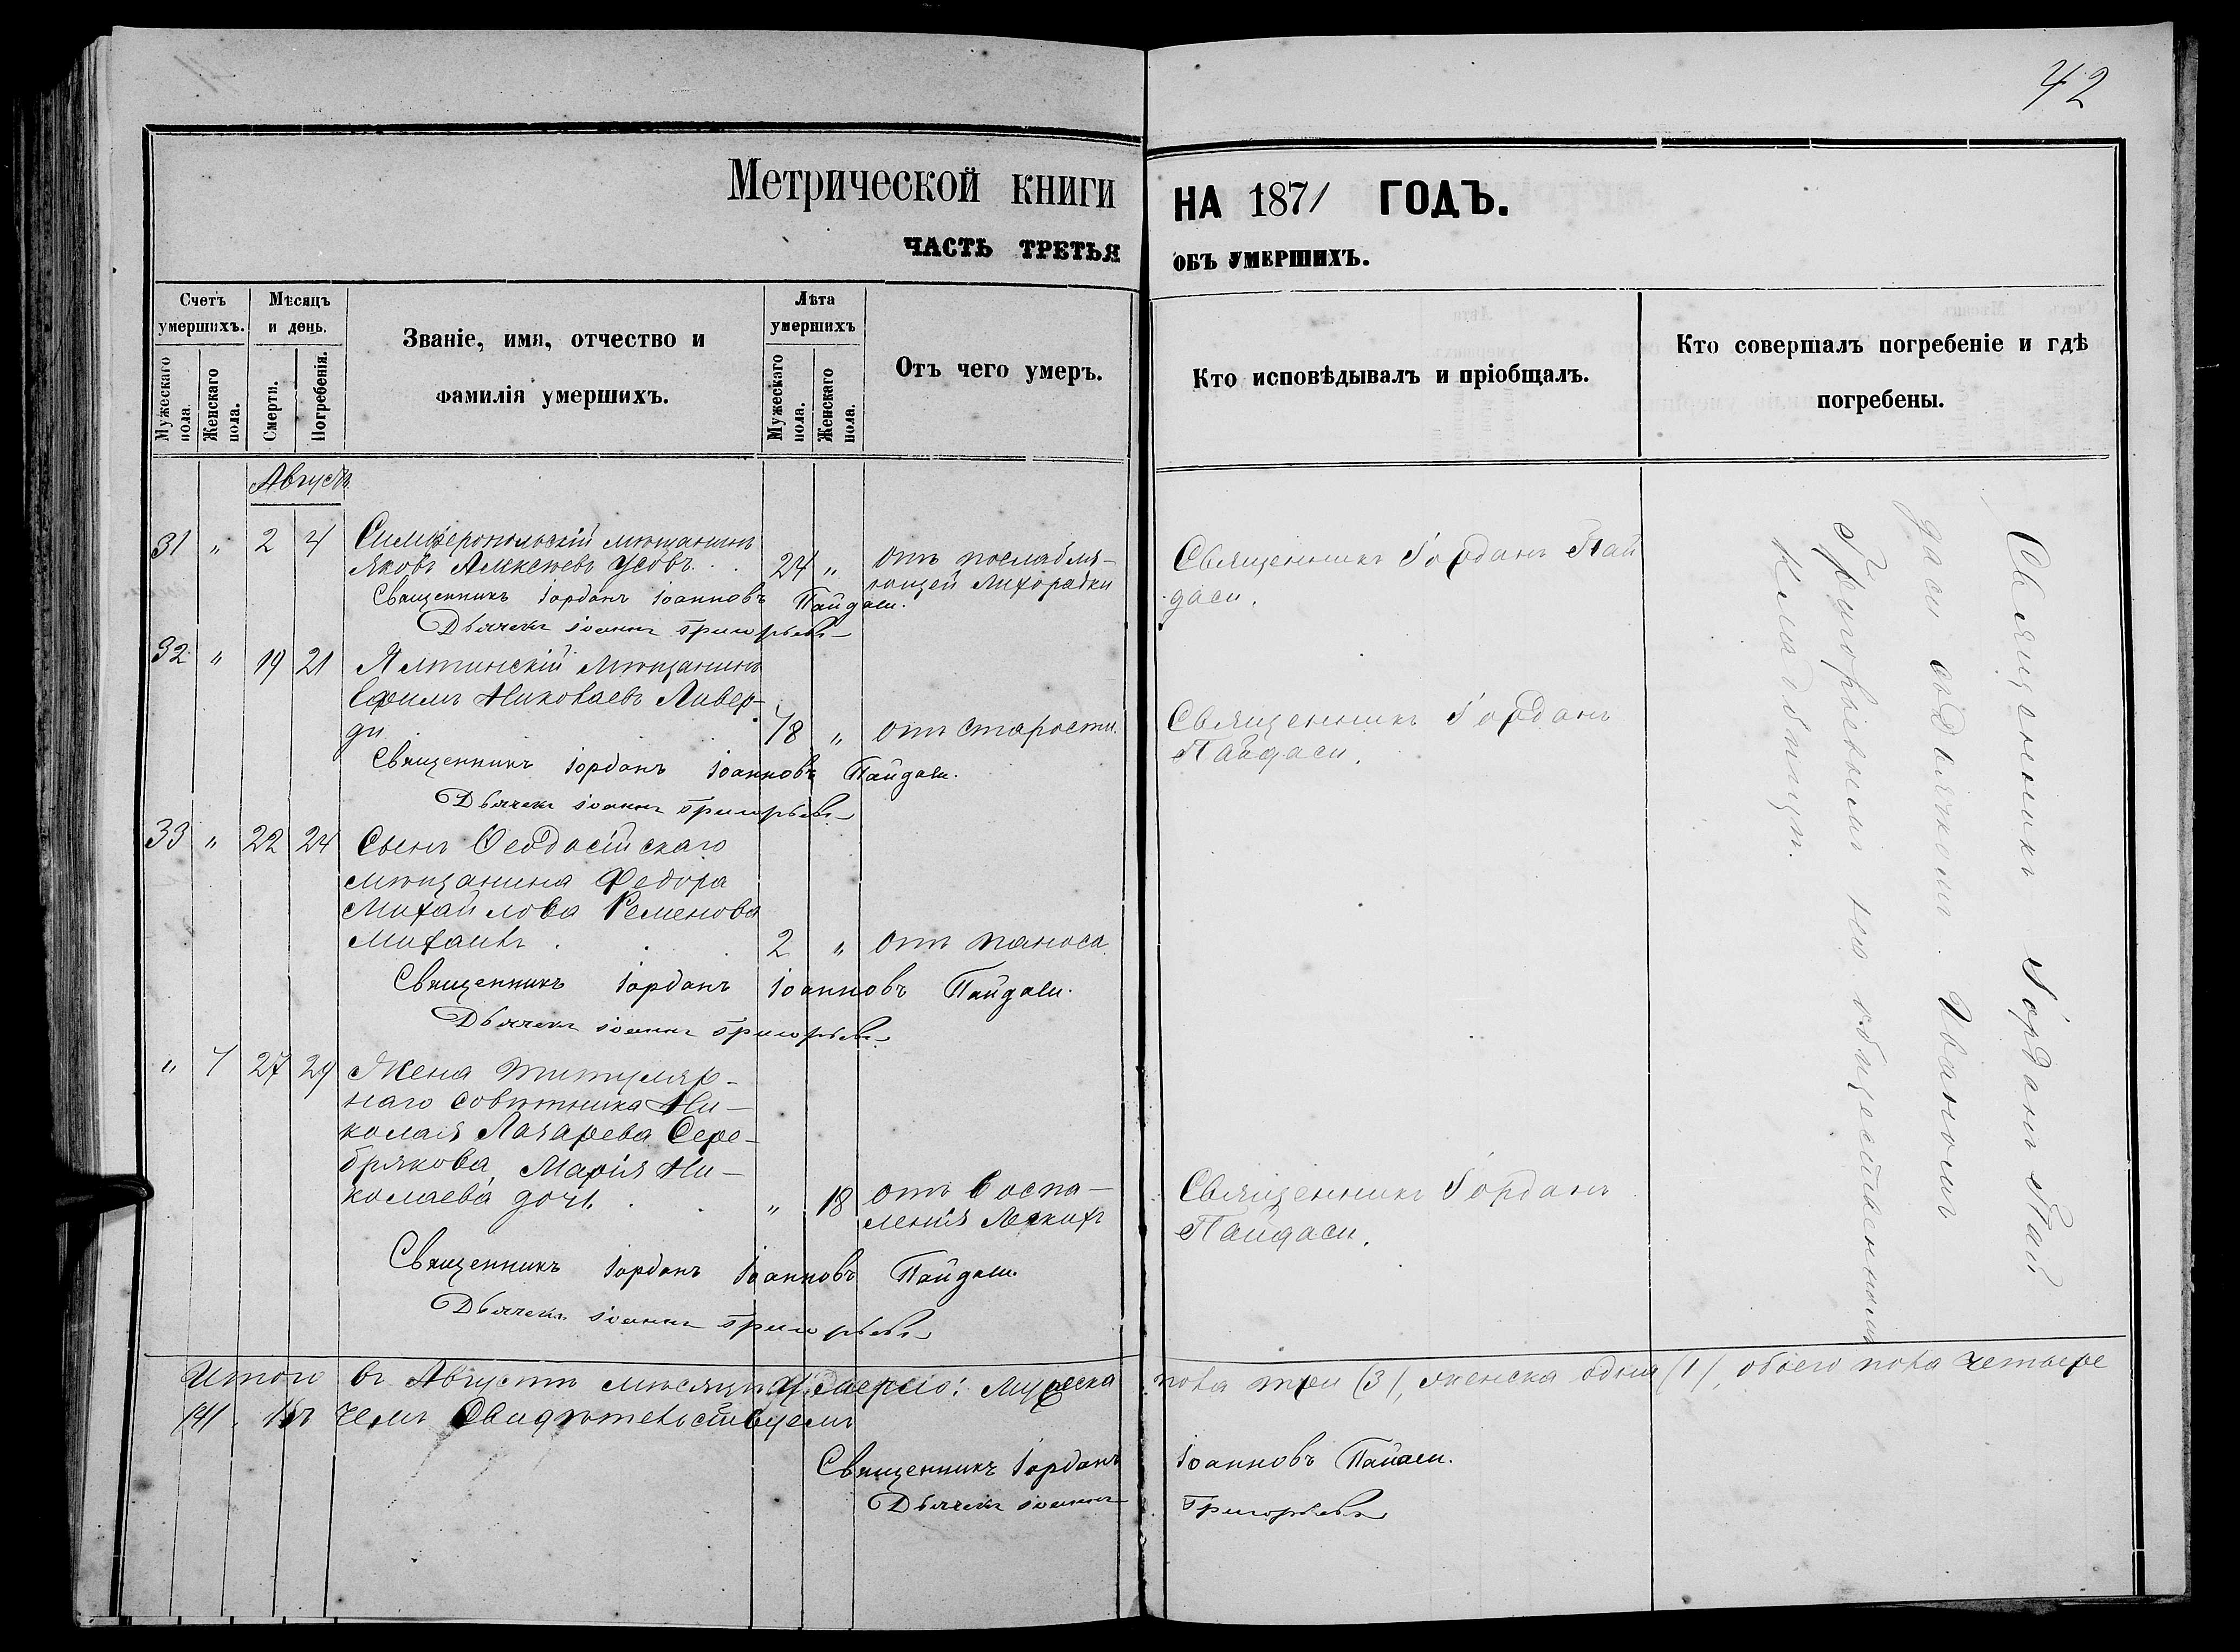 42
Метрической книги НА 1871 ГОДЪ.
ЧАСТЬ ТРЕТЬЯ ОБЪ УМЕРШИХЪ.
Счетъ умершихъ.
Мужескаго пола.
Женскаго пола.
Мѣсяцъ и день.
Смерти.
Погребенія.
Званіе, имя, отчество и
фамилія умершихъ.
Лѣта умершихъ
Мужескаго пола.
Женскаго пола.
Отъ чего умеръ.
Кто исповѣдывалъ и пріобщалъ.
Кто совершалъ погребеніе и гдѣ
погребены.
Августъ
31 " 2 4 Симферопольскій мѣщанинъ
Яковъ Алексѣевъ Усовъ . . 24 " отъ послабля-
ющей лихорадки
Священникъ Іорданъ Пай
даси.
Священникъ Іорданъ Іоанновъ Пайдаси.
Дьячекъ Іоаннъ Григорьевъ
32 " 19 21 Ялтинскій мѣщанинъ
Ефимъ Николаевъ Ливер-
ди . . 78 " отъ старости.
Священникъ Іорданъ
Пайдаси.
Священникъ Іорданъ Іоанновъ Пайдаси.
Дьячекъ Іоаннъ Григорьевъ
33 " 22 24 Сынъ Ѳеодосійскаго
мѣщанина Федора
Михайлова Семенова
Михаилъ . . . 2 " отъ поноса
Священникъ Іорданъ Іоанновъ Пайдаси.
Дьячекъ Іоаннъ Григорьевъ
" 7 27 29 Жена титуляр-
наго совѣтника Ни-
колая Лазарева Сере-
брякова, Марія Ни-
колаева дочь . . " 18 отъ воспа-
ленія легкихъ
Священникъ Іорданъ
Пайдаси.
Священникъ Іорданъ Іоанновъ Пайдаси.
Дьячекъ Іоаннъ Григорьевъ
Священникъ Іорданъ Пай
даси съ дьячкомъ Иваномъ
Григорьевымъ на общественномъ
кладбищѣ.
Итого въ Августѣ мѣсяцѣ умерло: мужеска пола три (3), женска одна (1), обоего пола четыре
(4). Въ чемъ свидѣтельствуемъ
Священникъ Іорданъ Іоанновъ Пайдаси.
Дьячекъ Іоаннъ Григорьевъ